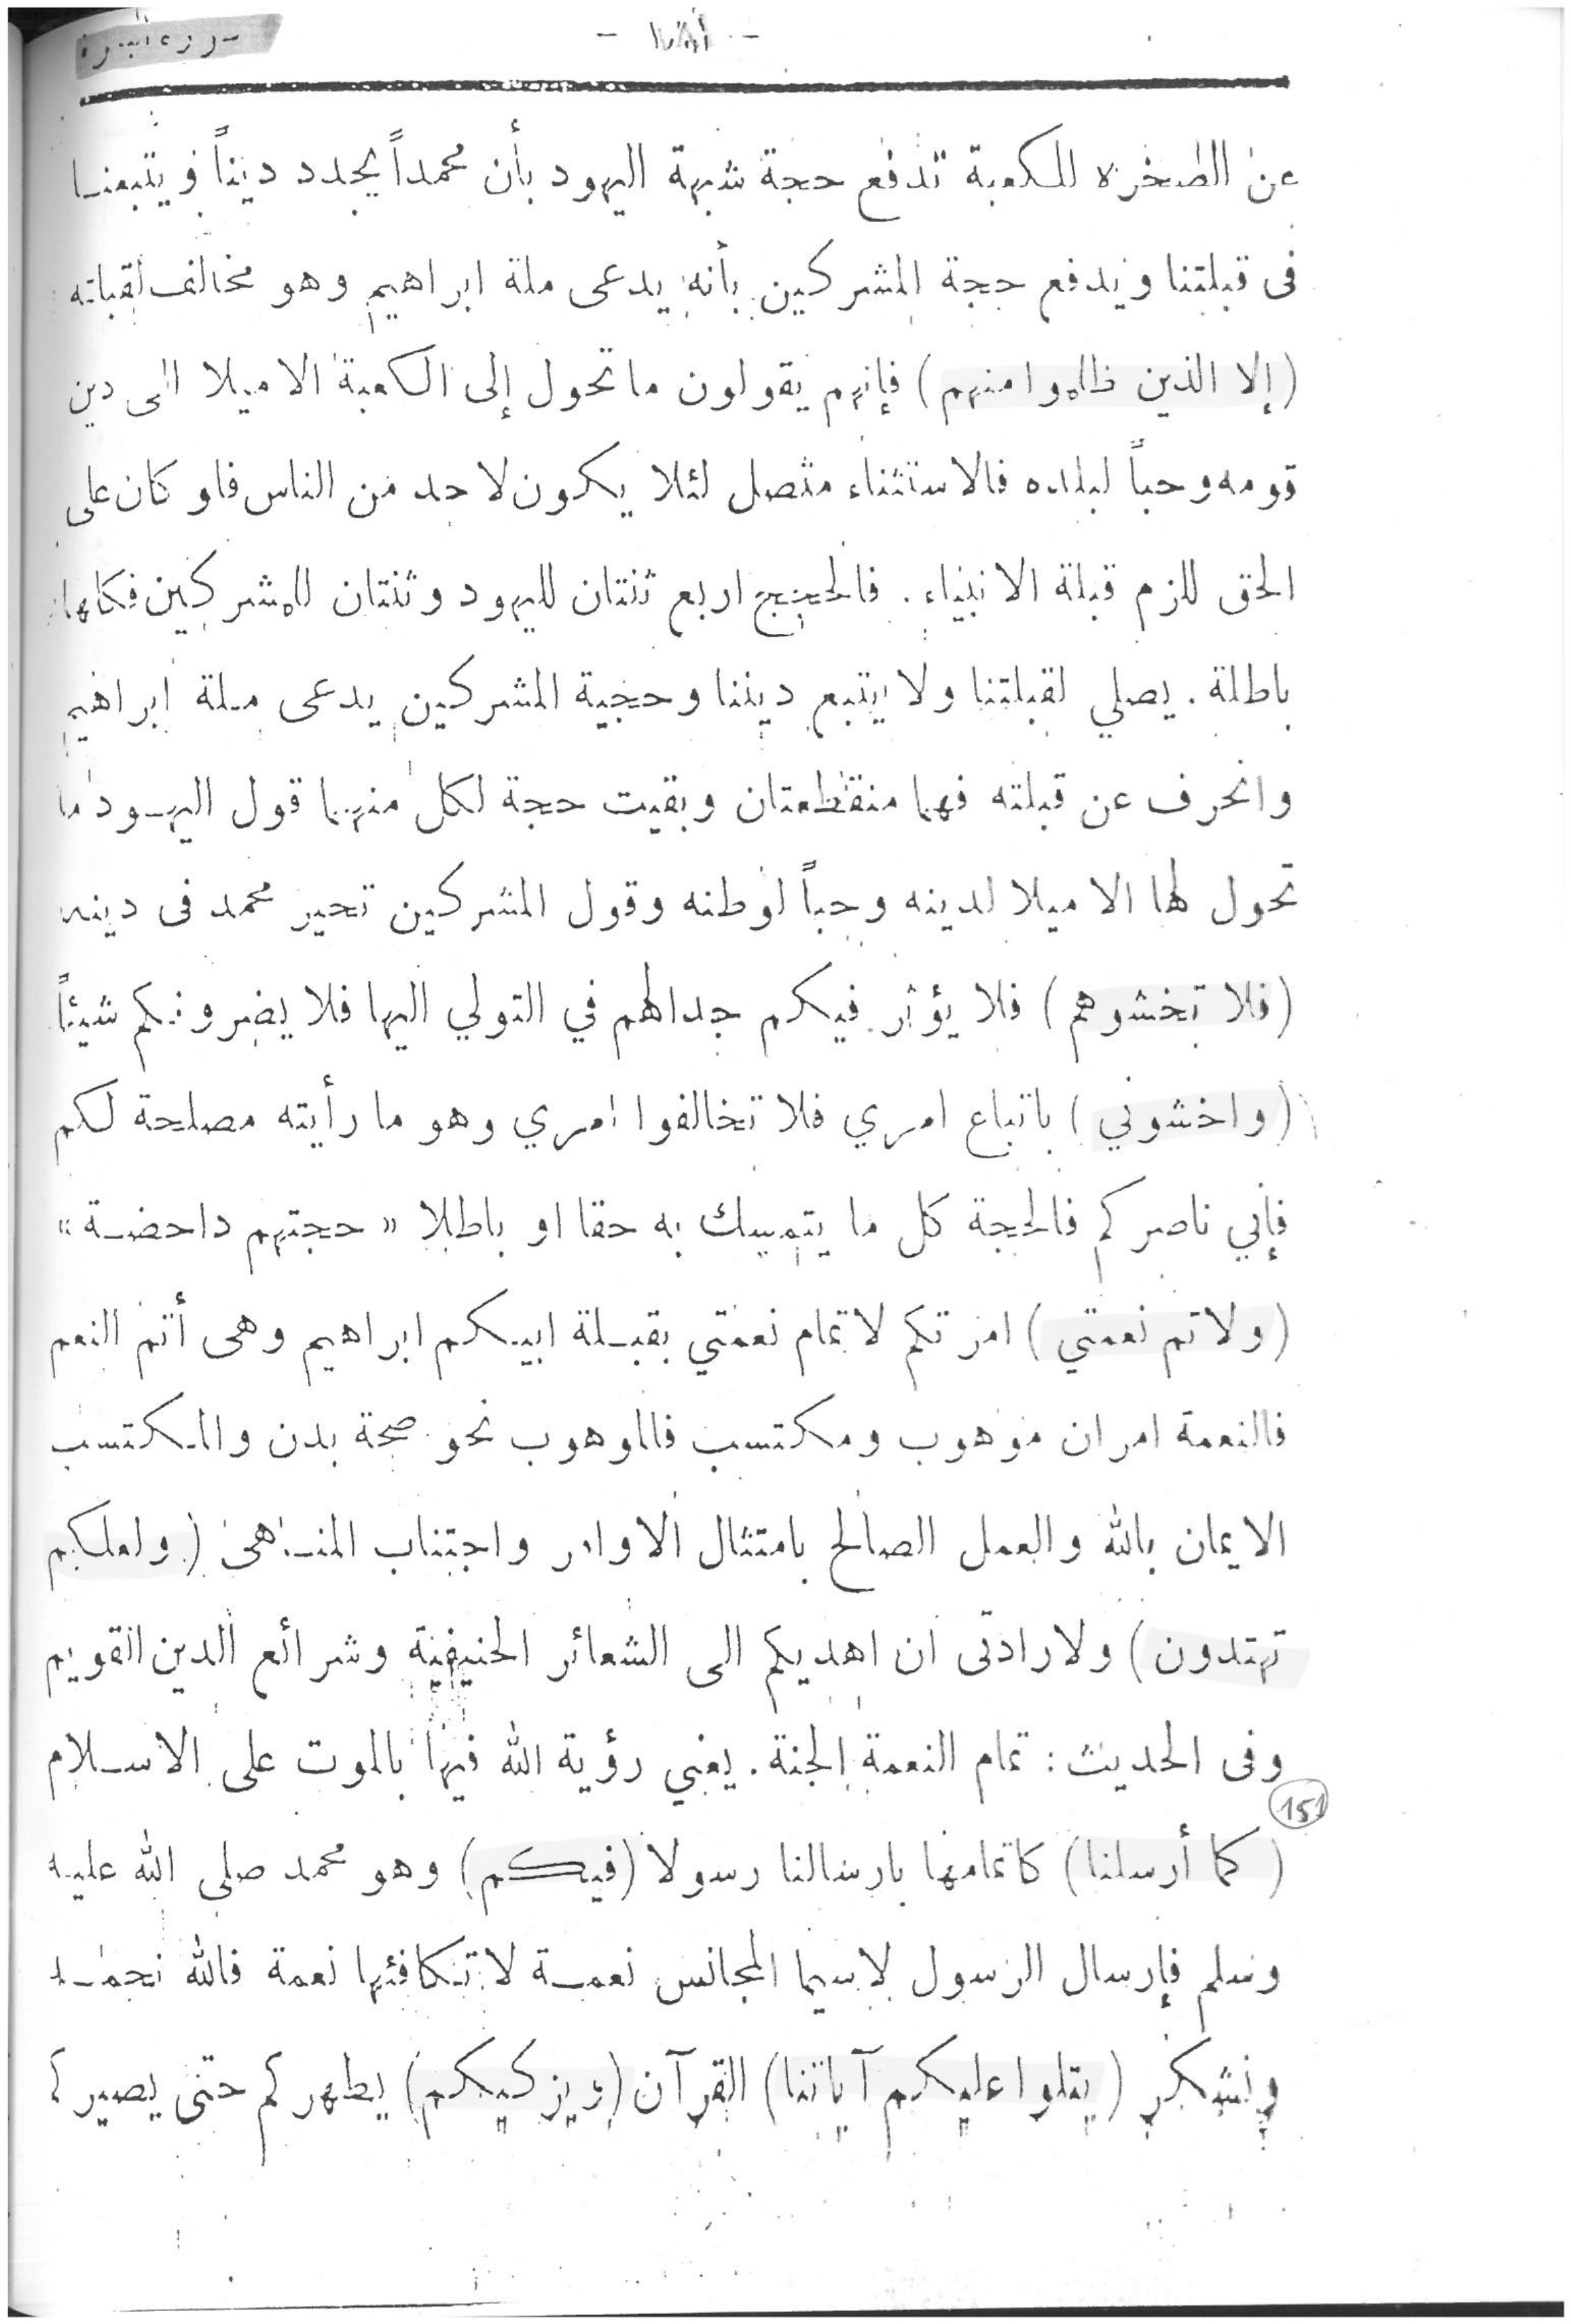 سورة البقرة
عن الصخرة للكعبة تدفع حجة شبهة اليهود بأن محمداً يجدد ديناً ويتبعنا
فى قبلتنا ويدفع حجة المشركين بأنه يدعى ملة ابراهيم وهو مخالف لقبلته
(إلا الذين ظلموا منهم) فإنهم يقولون ما تحول إلى الكعبة الا ميلا الى دين
قومه وحباً لبلده فالاستثناء متصل لئلا يكون لاحد من الناس فلو كان على
الحق للزم قبلة الانبياء. فالحجج اربع ثنتان لليهود وثنتان للمشركين فكلها
باطلة. يصلي لقبلتنا ولا يتبع ديننا وحجية المشركين يدعى ملة ابراهيم
وانحرف عن قبلته فهما منقطعتان وبقيت حجة لكل منهما قول اليهود ما
تحول لها الا ميلا لدينه وحباً لوطنه وقول المشركين تحير محمد فى دينه
(فلا تخشوهم) فلا يؤثر فيكم جدالهم في التولي اليها فلا يضرونكم شيئاً
(واخشوني) باتباع امري فلا تخالفوا امري وهو ما رأيته مصلحة لكم
فإني ناصركم فالحجة كل ما يتمسك به حقا او باطلا « حجتهم داحضة »
(ولاتم نعمتي) امرتكم لاتمام نعمتي بقبلة ابيكم ابراهيم وهى أتم النعم
فالنعمة امران موهوب ومكتسب فالموهوب نحو صحة بدن والمكتسب
الايمان بالله والعمل الصالح بامتثال الاوامر واجتناب المناهى (ولعلكم
تهتدون) ولارادتى ان اهديكم الى الشعائر الحنيفية وشرائع الدين القويم
وفى الحديث : تمام النعمة الجنة. يعني رؤية الله فيها بالموت على الاسلام
151
(كما أرسلنا) كاتمامها بارسالنا رسولا (فيكم) وهو محمد صلى الله عليه
وسلم فإرسال الرسول لاسيما المجانس نعمة لا تكافئها نعمة فالله نحمد
ونشكر (يتلوا عليكم آياتنا) القرآن (ويزكيكم) يطهركم حتى يصيركم